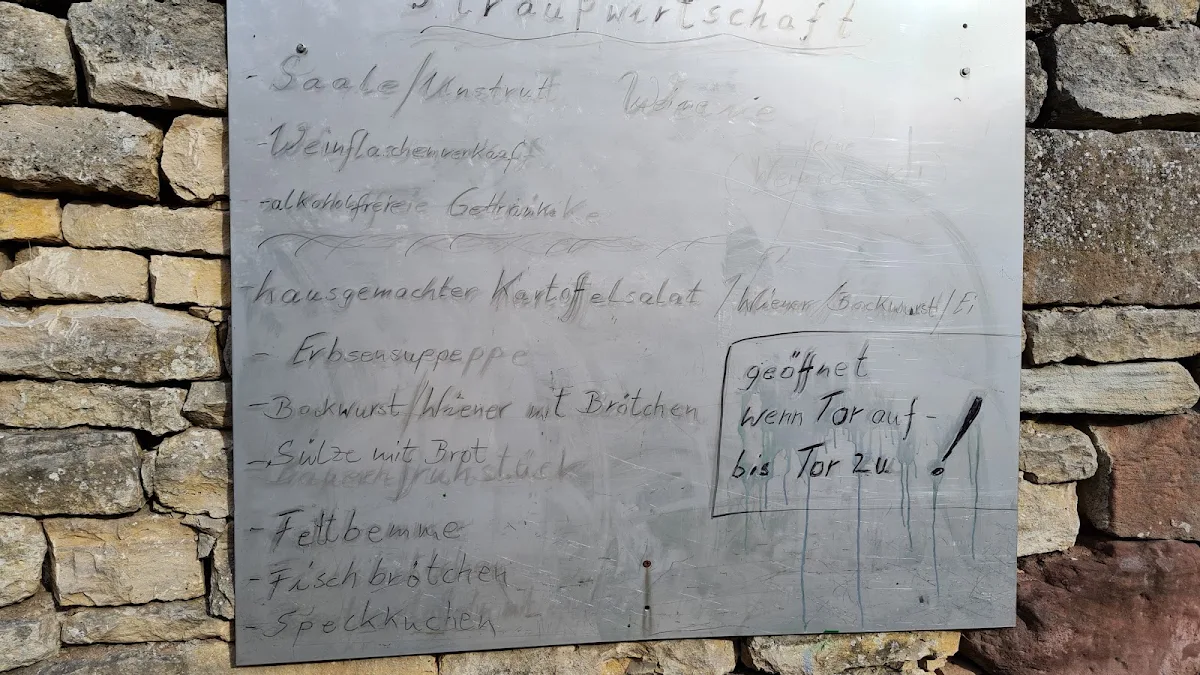 Straußwirtschaft
- Saale/Unstrutt Weine
- Weinflaschenverkauf
- alkoholfreie Getränke
- hausgemachter Kartoffelsalat / Wiener/Bockwurst/Ei
- Erbsensuppe
- Bockwurst/Wiener mit Brötchen
- Sülze mit Brot
- Fettbemme
- Fischbrötchen
- Speckkuchen
geöffnet
wenn Tor auf -
bis Tor zu !